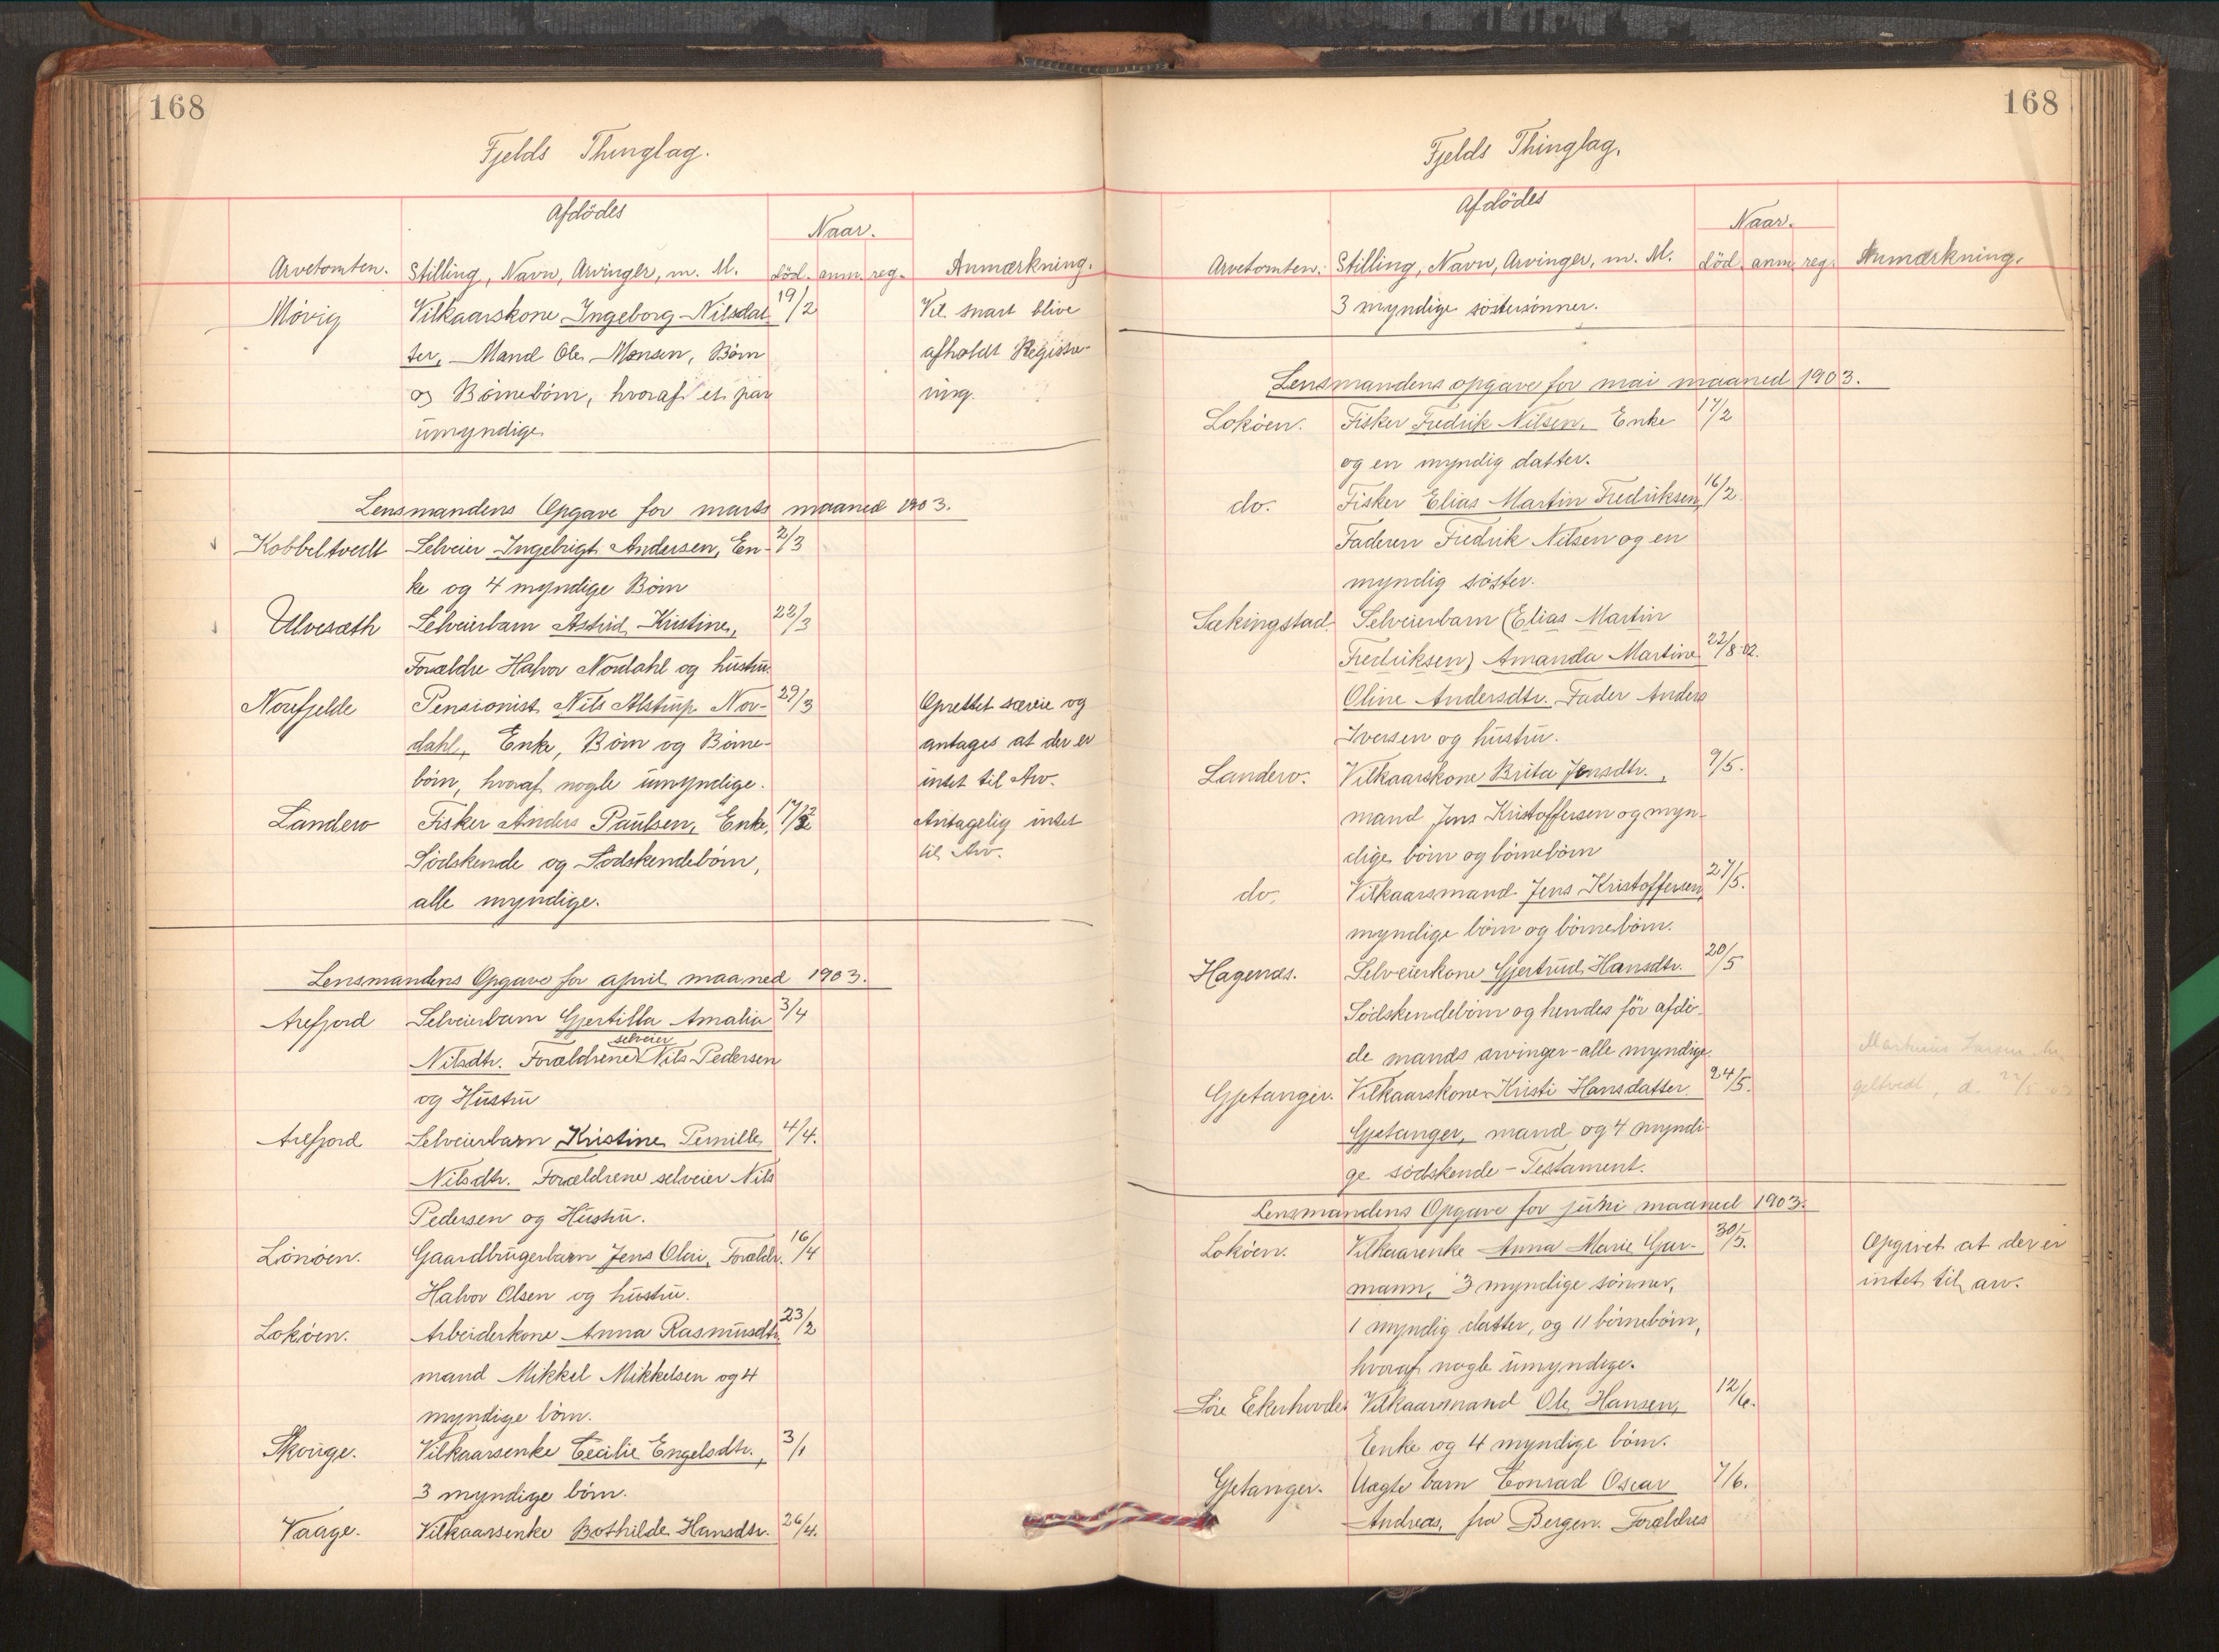 168
Fjelds Thinglag.
Afdödes
Naar.
Arvetomten. Stilling, Navn, Arvinger, m. M. död. anm. reg. Anmærkning.
Mövig Vilkaarskone Ingeborg Nilsdat- 19/2 Vil snart blive
ter, Mand Ole Monsen, Börn afholdt Registre-
og Börnebörn, hvoraf et par ring.
umyndige
Lensmandens Opgave for marts maaned 1903.
Kobbeltvedt Selveier Ingebrigt Andersen, En- 2/3
ke og 4 myndige Börn
Ulvesæth Selveierbarn Astrid Kristine, 22/3
Forældre Halvor Nordahl og hustru.
Norefjelde Pensionist Nils Alstrup Nor- 29/3 Oprettet særeie og
dahl, Enke, Börn og Börne- antages at der er
börn, hvoraf nogle umyndige. intet til Arv.
Landero Fisker Anders Paulsen, Enke, Antagelig intet
Södskende og Södskendebörn, til Arv.
alle myndige.
Lensmandens Opgave for april maaned 1903.
Arefjord Selveierbarn Gjertilla Amalia 3/4
selveier
Nilsdtr. Forældrene Nils Pedersen
og Hustru
Arefjord Selveierbarn Kristine Pernille 4/4.
Nilsdtr. Forældrene selveier Nils
Pedersen og Hustru.
Lönöen. Gaardbrugerbarn Jens Olai, Forældr. 16/4
Halvor Olsen og hustru.
Loköen. Arbeiderkone Anna Rasmusdtr. 23/2
mand Mikkel Mikkelsen og 4
myndige börn.
Skouge. Vilkaarsenke Cecilie Engelsdtr., 3/1
3 myndige börn.
Vaage. Vilkaarsenke Bothilde Hansdtr. 26/4.
168
Fjelds Thinglag.
Afdödes
Naar.
Arvetomten. Stilling, Navn, Arvinger, m. M. död. anm. reg. Anmærkning.
3 myndige söstersönner.
Lensmandens opgave for mai maaned 1903.
Loköen. Fisker Fredrik Nilsen, Enke 17/2
og en myndig datter.
do. Fisker Elias Martin Fredriksen, 16/2
Faderen Fredrik Nilsen og en
myndig söster.
Sækingstad. Selveierbarn (Elias Martin
Fredriksen) Amanda Martine 22/8-02.
Oline Andersdtr. Fader Anders
Iversen og hustru.
Landero. Vilkaarskone Brita Jensdtr., 9/5.
mand Jens Kristoffersen og myn-
dige börn og börnebörn
do. Vilkaarsmand Jens Kristoffersen, 27/5.
myndige börn og börnebörn.
Hagenæs. Selveierkone Gjertrud Hansdtr. 20/5
Södskendebörn og hendes för afdö-
de mands arvinger - alle myndige.
Gjetanger. Vilkaarskone Kristi Hansdatter 24/5.
Gjetanger, mand og 4 myndi-
ge södskende - Testament.
Lensmandens Opgave for juni maaned 1903.
Loköen. Vilkaarenke Anna Marie Gar- 30/5. Opgivet at der er
mann, 3 myndige sönner, intet til arv.
1 myndig datter, og 11 börnebörn,
hvoraf nogle umyndige.
Söre Ekerhovde Vilkaarsmand Ole Hansen, 12/6.
Enke og 4 myndige börn.
Gjetanger. Uægte barn Conrad Oscar 7/6.
Andreas, fra Bergen. Forældres